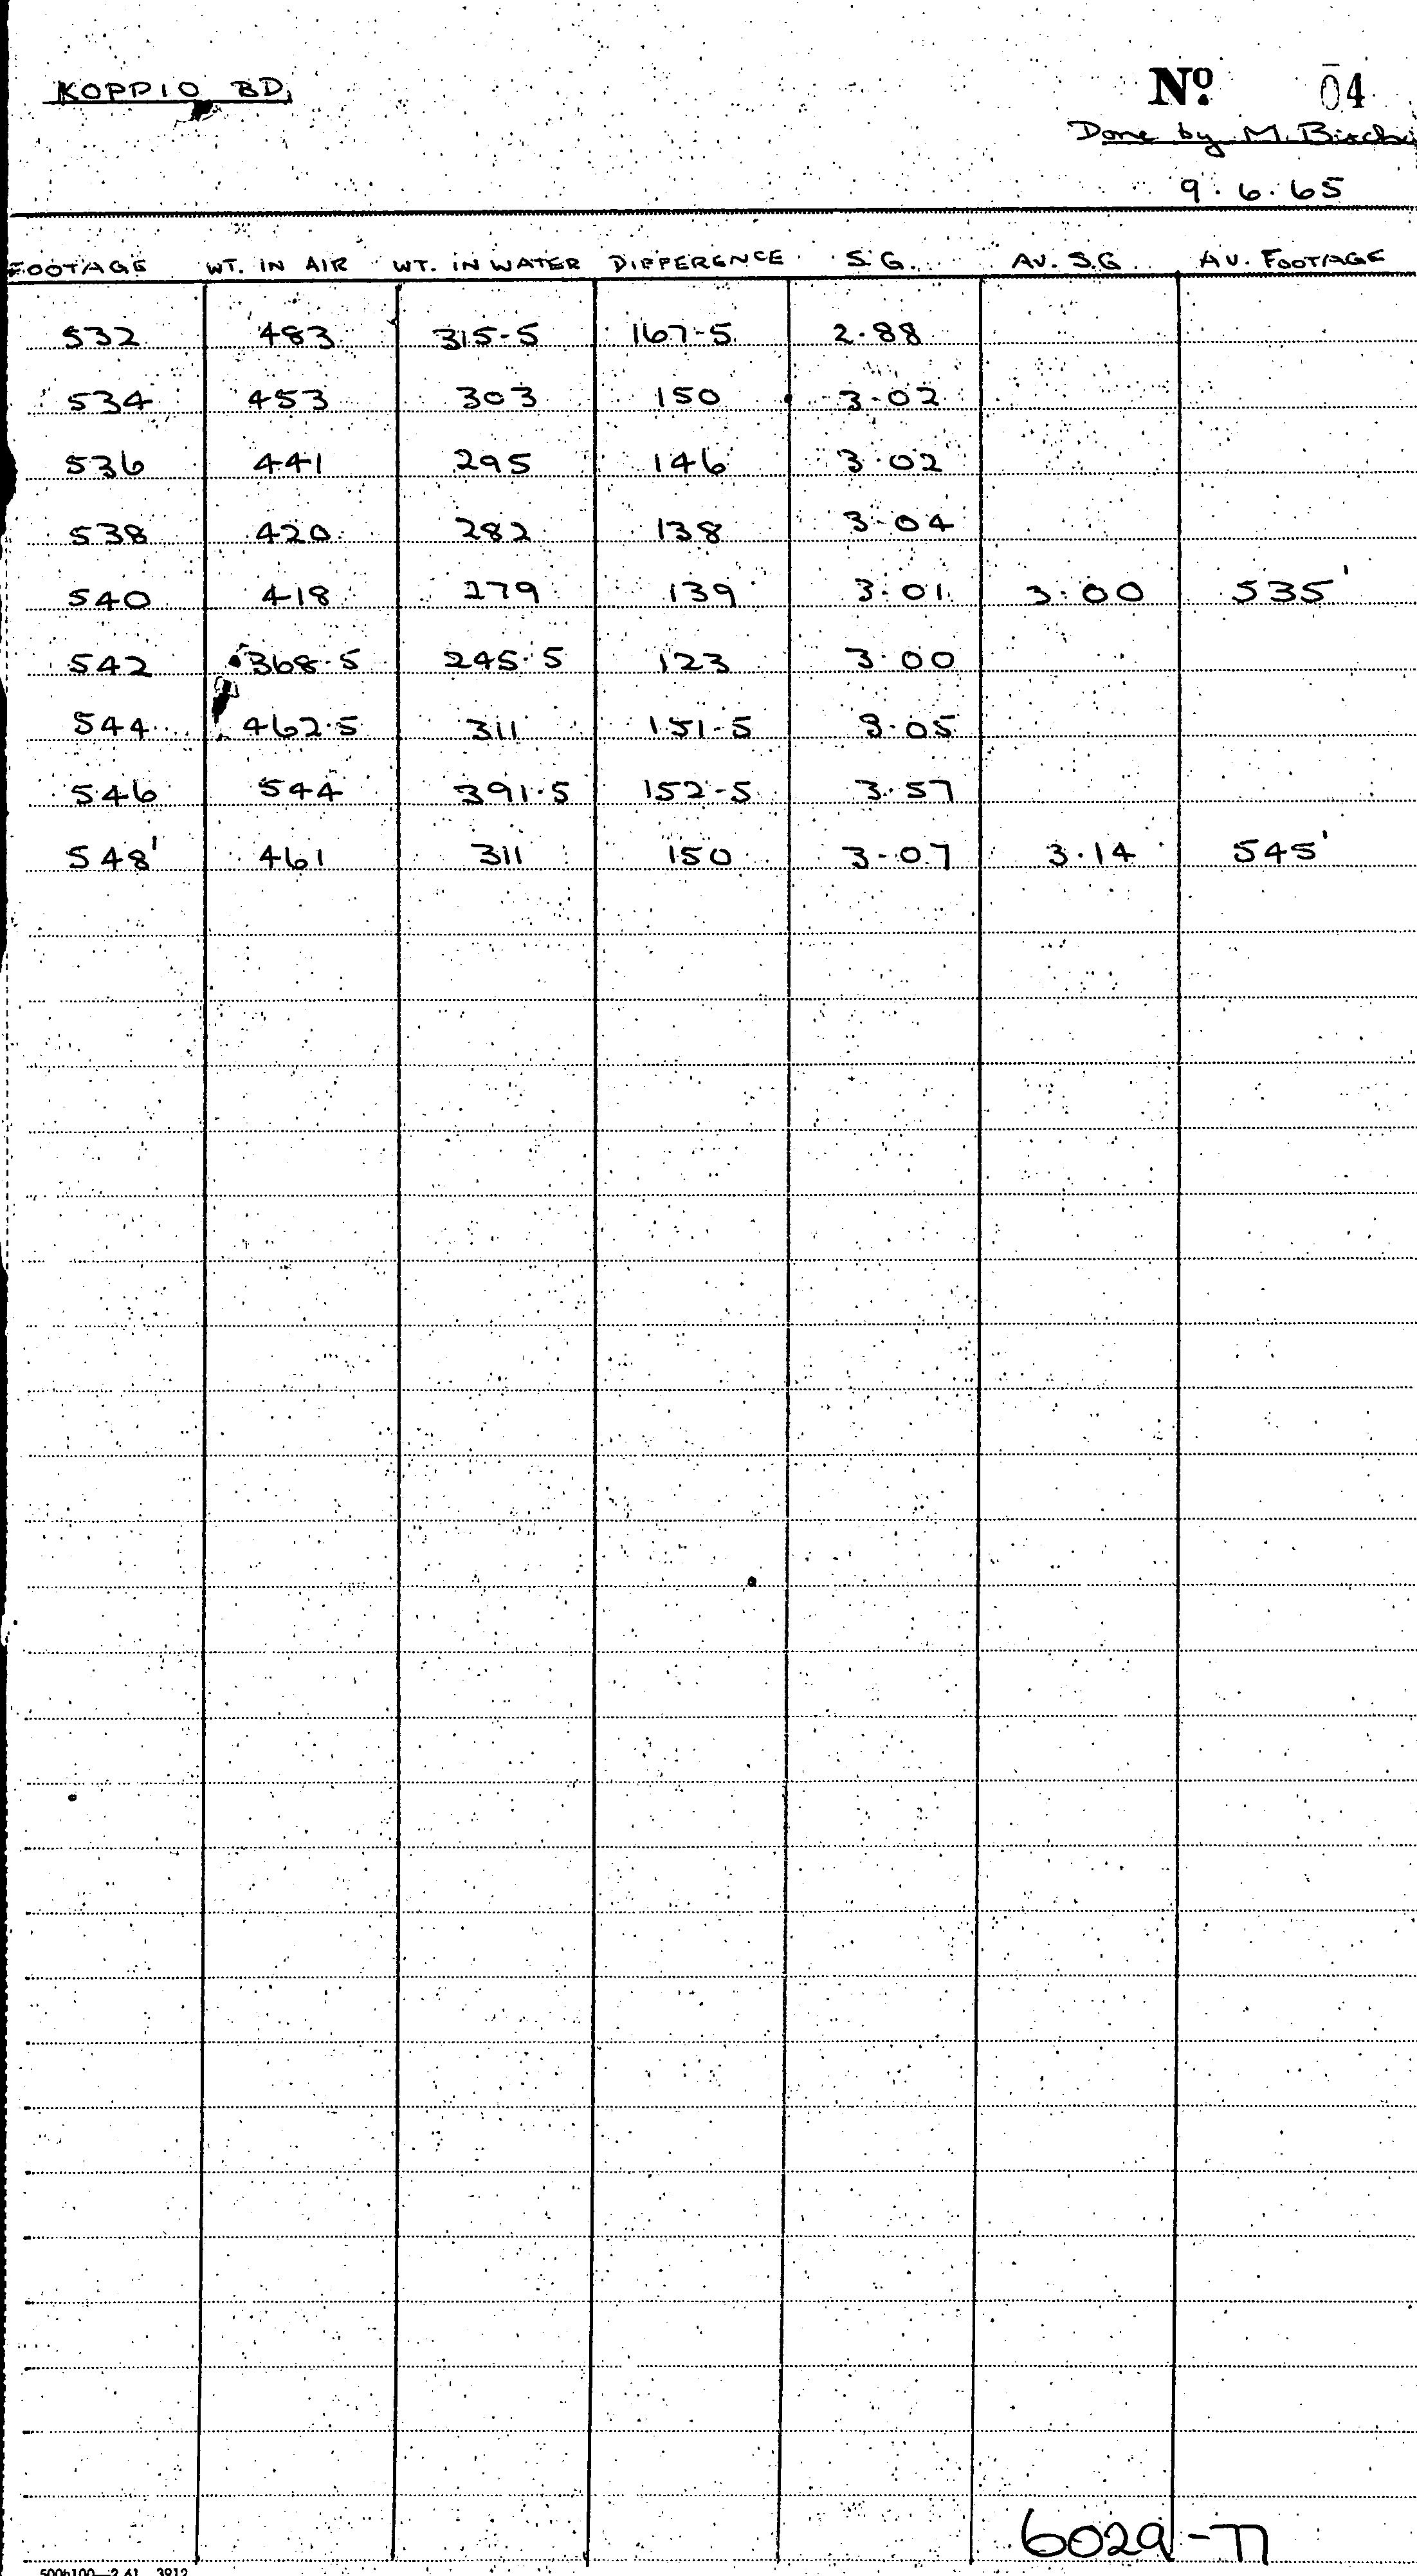 KOPPIO BD. Nº 04
Done by M.
9.6.65
FOOTAGE WT. IN AIR WT. IN WATER DIFFERENCE S.G. AV. S.G AV. FOOTAGE
532 483 315.5 167.5 2.88
534 453 303 150 3.02
536 441 295 146 3.02
538 420 282 138 3.04
540 418 279 139 3.01 3.00 535'
542 368.5 245.5 123 3.00
544 462.5 311 151.5 3.05
546 544 391.5 152.5 3.57
548' 461 311 150 3.07 3.14 545'
6029-77
500b100—2.61 3912